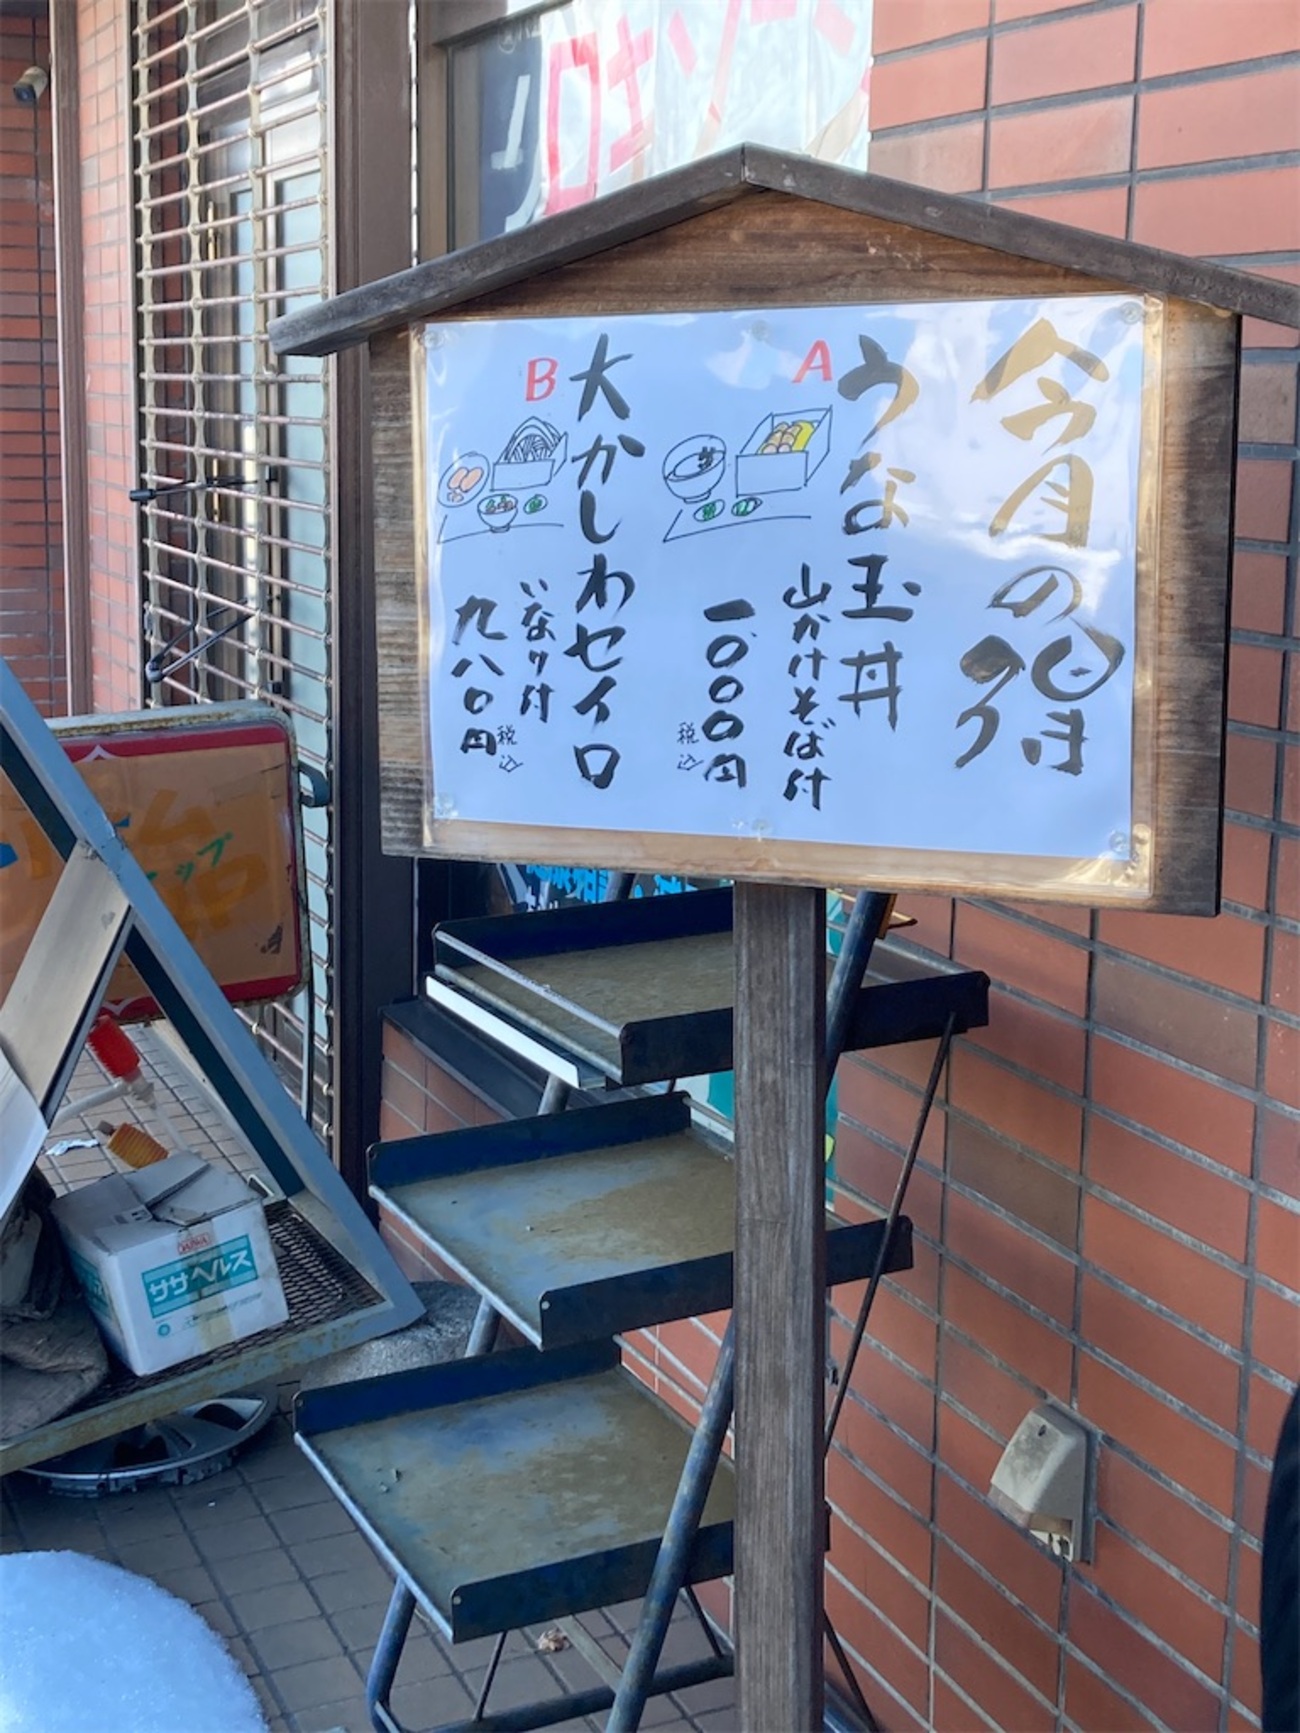 今月の得
A
うな玉丼
山かけそば付
一〇〇〇円
税込
B
大かしわセイロ
いなり付
九八〇円
税込
ササヘルス